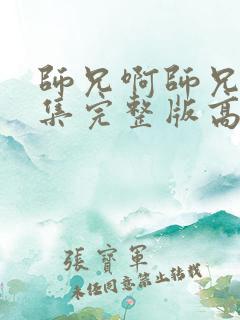 師兄啊師兄
集完整版高
張寶軍
未經同意禁止轉載